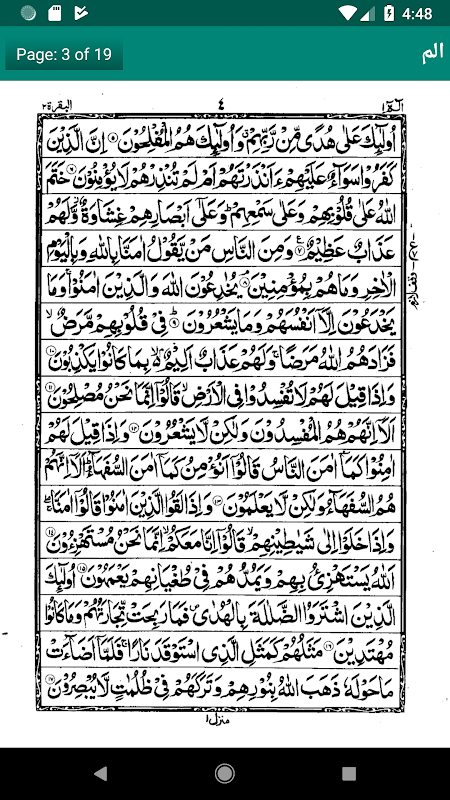 4:48
Page: 3 of 19
الم
البقرة ٢
٤
الٓمّٓ ١
اُولٰٓئِكَ عَلٰى هُدًى مِّنْ رَّبِّهِمْ وَاُولٰٓئِكَ هُمُ الْمُفْلِحُوْنَ ۝٥ اِنَّ الَّذِيْنَ
كَفَرُوْا سَوَآءٌ عَلَيْهِمْ ءَاَنْذَرْتَهُمْ اَمْ لَمْ تُنْذِرْهُمْ لَا يُؤْمِنُوْنَ ۝٦ خَتَمَ
اللّٰهُ عَلٰى قُلُوْبِهِمْ وَعَلٰى سَمْعِهِمْ ؕ وَعَلٰٓى اَبْصَارِهِمْ غِشَاوَةٌ ؗ وَّلَهُمْ
عَذَابٌ عَظِيْمٌ ۝٧ وَمِنَ النَّاسِ مَنْ يَّقُوْلُ اٰمَنَّا بِاللّٰهِ وَبِالْيَوْمِ
الْاٰخِرِ وَمَا هُمْ بِمُؤْمِنِيْنَ ۝٨ يُخٰدِعُوْنَ اللّٰهَ وَالَّذِيْنَ اٰمَنُوْا ۚ وَمَا
يَخْدَعُوْنَ اِلَّآ اَنْفُسَهُمْ وَمَا يَشْعُرُوْنَ ۝٩ فِيْ قُلُوْبِهِمْ مَّرَضٌ ۙ
فَزَادَهُمُ اللّٰهُ مَرَضًا ۚ وَلَهُمْ عَذَابٌ اَلِيْمٌۢ ۙ بِمَا كَانُوْا يَكْذِبُوْنَ ۝١٠
وَاِذَا قِيْلَ لَهُمْ لَا تُفْسِدُوْا فِى الْاَرْضِ ۙ قَالُوْٓا اِنَّمَا نَحْنُ مُصْلِحُوْنَ ۝١١
اَلَآ اِنَّهُمْ هُمُ الْمُفْسِدُوْنَ وَلٰكِنْ لَّا يَشْعُرُوْنَ ۝١٢ وَاِذَا قِيْلَ لَهُمْ
اٰمِنُوْا كَمَآ اٰمَنَ النَّاسُ قَالُوْٓا اَنُؤْمِنُ كَمَآ اٰمَنَ السُّفَهَآءُ ؕ اَلَآ اِنَّهُمْ
هُمُ السُّفَهَآءُ وَلٰكِنْ لَّا يَعْلَمُوْنَ ۝١٣ وَاِذَا لَقُوا الَّذِيْنَ اٰمَنُوْا قَالُوْٓا اٰمَنَّا ۖۚ
وَاِذَا خَلَوْا اِلٰى شَيٰطِيْنِهِمْ ۙ قَالُوْٓا اِنَّا مَعَكُمْ ۙ اِنَّمَا نَحْنُ مُسْتَهْزِءُوْنَ ۝١٤
اَللّٰهُ يَسْتَهْزِئُ بِهِمْ وَيَمُدُّهُمْ فِيْ طُغْيَانِهِمْ يَعْمَهُوْنَ ۝١٥ اُولٰٓئِكَ
الَّذِيْنَ اشْتَرَوُا الضَّلٰلَةَ بِالْهُدٰى ۪ فَمَا رَبِحَتْ تِّجَارَتُهُمْ وَمَا كَانُوْا
مُهْتَدِيْنَ ۝١٦ مَثَلُهُمْ كَمَثَلِ الَّذِى اسْتَوْقَدَ نَارًا ۚ فَلَمَّآ اَضَآءَتْ
مَا حَوْلَهٗ ذَهَبَ اللّٰهُ بِنُوْرِهِمْ وَتَرَكَهُمْ فِيْ ظُلُمٰتٍ لَّا يُبْصِرُوْنَ ۝١٧
منزل ١